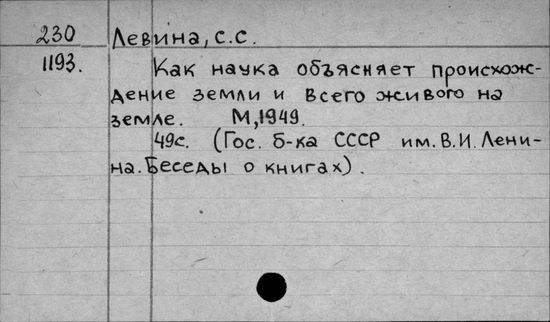 230 Левина, с.с.
1193. Как наука объясняет происхож-
дение земли и всего живого на
земле. М, 1949.
49с. (Гос. б-ка СССР им. В.И. Лени-
на. Беседы о книгах).